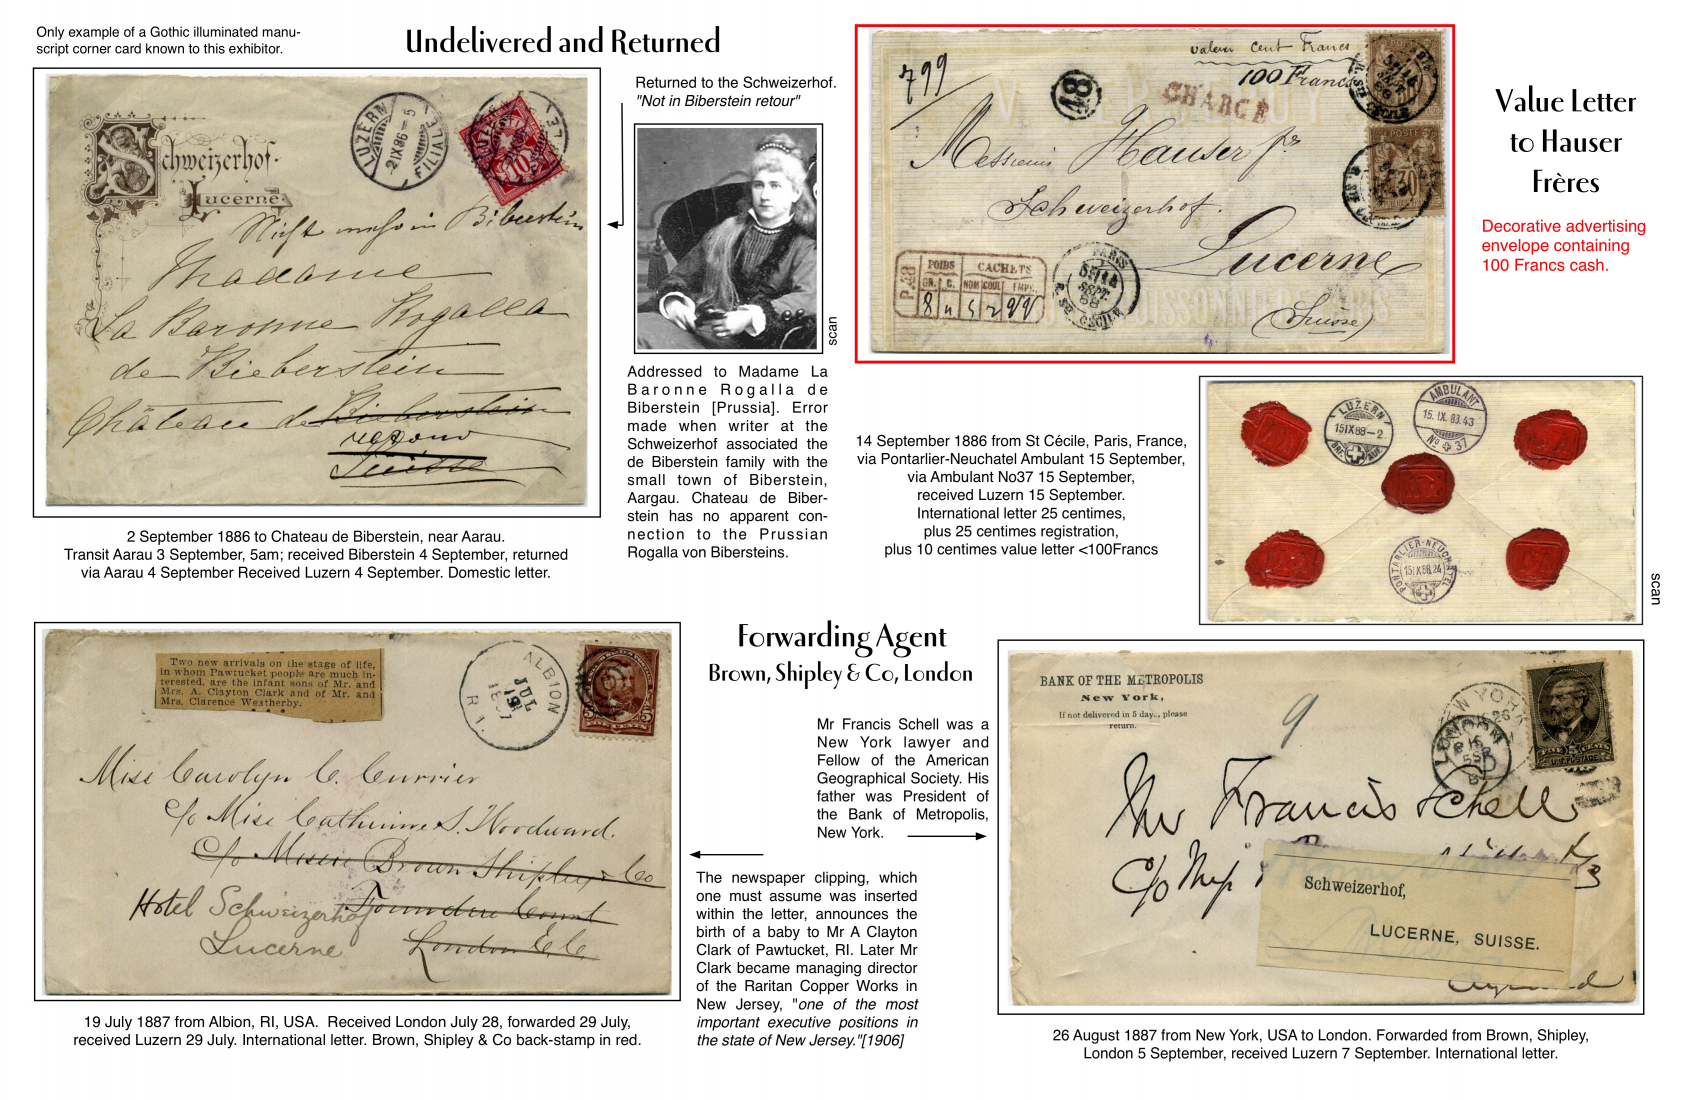 Only example of a Gothic illuminated manu-
script corner card known to this exhibitor.
Undelivered and Returned
Schweizerhof.
Lucerne.
LUZERN
2 IX 86-5
FILIALE
10
Nicht mehr in Biberstein
Madame
La Baronne Rogalla
de Bieberstein
Château de Bieberstein
retour
Suisse
2 September 1886 to Chateau de Biberstein, near Aarau.
Transit Aarau 3 September, 5am; received Biberstein 4 September, returned
via Aarau 4 September Received Luzern 4 September. Domestic letter.
Returned to the Schweizerhof.
"Not in Biberstein retour"
scan
Addressed to Madame La
Baronne Rogalla de
Biberstein [Prussia]. Error
made when writer at the
Schweizerhof associated the
de Biberstein family with the
small town of Biberstein,
Aargau. Chateau de Biber-
stein has no apparent con-
nection to the Prussian
Rogalla von Bibersteins.
799
48
CHARGÉ
valeur cent Francs
100 Francs
Messieurs Hauser frs
Schweizerhof.
Lucerne
(Suisse)
P.68
POIDS
CACHETS
GR.
C.
NOM
COUL
EMPR.
PARIS
SEPT.
88
R. Ste CECILE
POSTE
30
Value Letter
to Hauser
Frères
Decorative advertising
envelope containing
100 Francs cash.
14 September 1886 from St Cécile, Paris, France,
via Pontarlier-Neuchatel Ambulant 15 September,
via Ambulant No37 15 September,
received Luzern 15 September.
International letter 25 centimes,
plus 25 centimes registration,
plus 10 centimes value letter <100Francs
LUZERN
15 IX 88-2
BRF. AUF.
AMBULANT
15. IX. 83.43
No 37
PONTARLIER-NEUCHATEL
15 IX 88.24
scan
Forwarding Agent
Brown, Shipley & Co, London
Two new arrivals on the stage of life,
in whom Pawtucket people are much in-
terested, are the infant sons of Mr. and
Mrs. A. Clayton Clark and of Mr. and
Mrs. Clarence Weatherby.
ALBION
JUL
19
R.I.
Miss Carolyn C. Currier
c/o Miss Catherine S. Woodward.
c/o Messrs Brown Shipley & Co
Founders Court
London E.C.
Hotel Schweizerhof
Lucerne
19 July 1887 from Albion, RI, USA. Received London July 28, forwarded 29 July,
received Luzern 29 July. International letter. Brown, Shipley & Co back-stamp in red.
Mr Francis Schell was a
New York lawyer and
Fellow of the American
Geographical Society. His
father was President of
the Bank of Metropolis,
New York.
The newspaper clipping, which
one must assume was inserted
within the letter, announces the
birth of a baby to Mr A Clayton
Clark of Pawtucket, RI. Later Mr
Clark became managing director
of the Raritan Copper Works in
New Jersey, "one of the most
important executive positions in
the state of New Jersey."[1906]
BANK OF THE METROPOLIS
New York,
If not delivered in 5 days, please
return.
9
NEW YORK
LONDON
FIVE 5 CENTS
U.S. POSTAGE
Mr Francis Schell
c/o
Schweizerhof,
LUCERNE, SUISSE.
26 August 1887 from New York, USA to London. Forwarded from Brown, Shipley,
London 5 September, received Luzern 7 September. International letter.